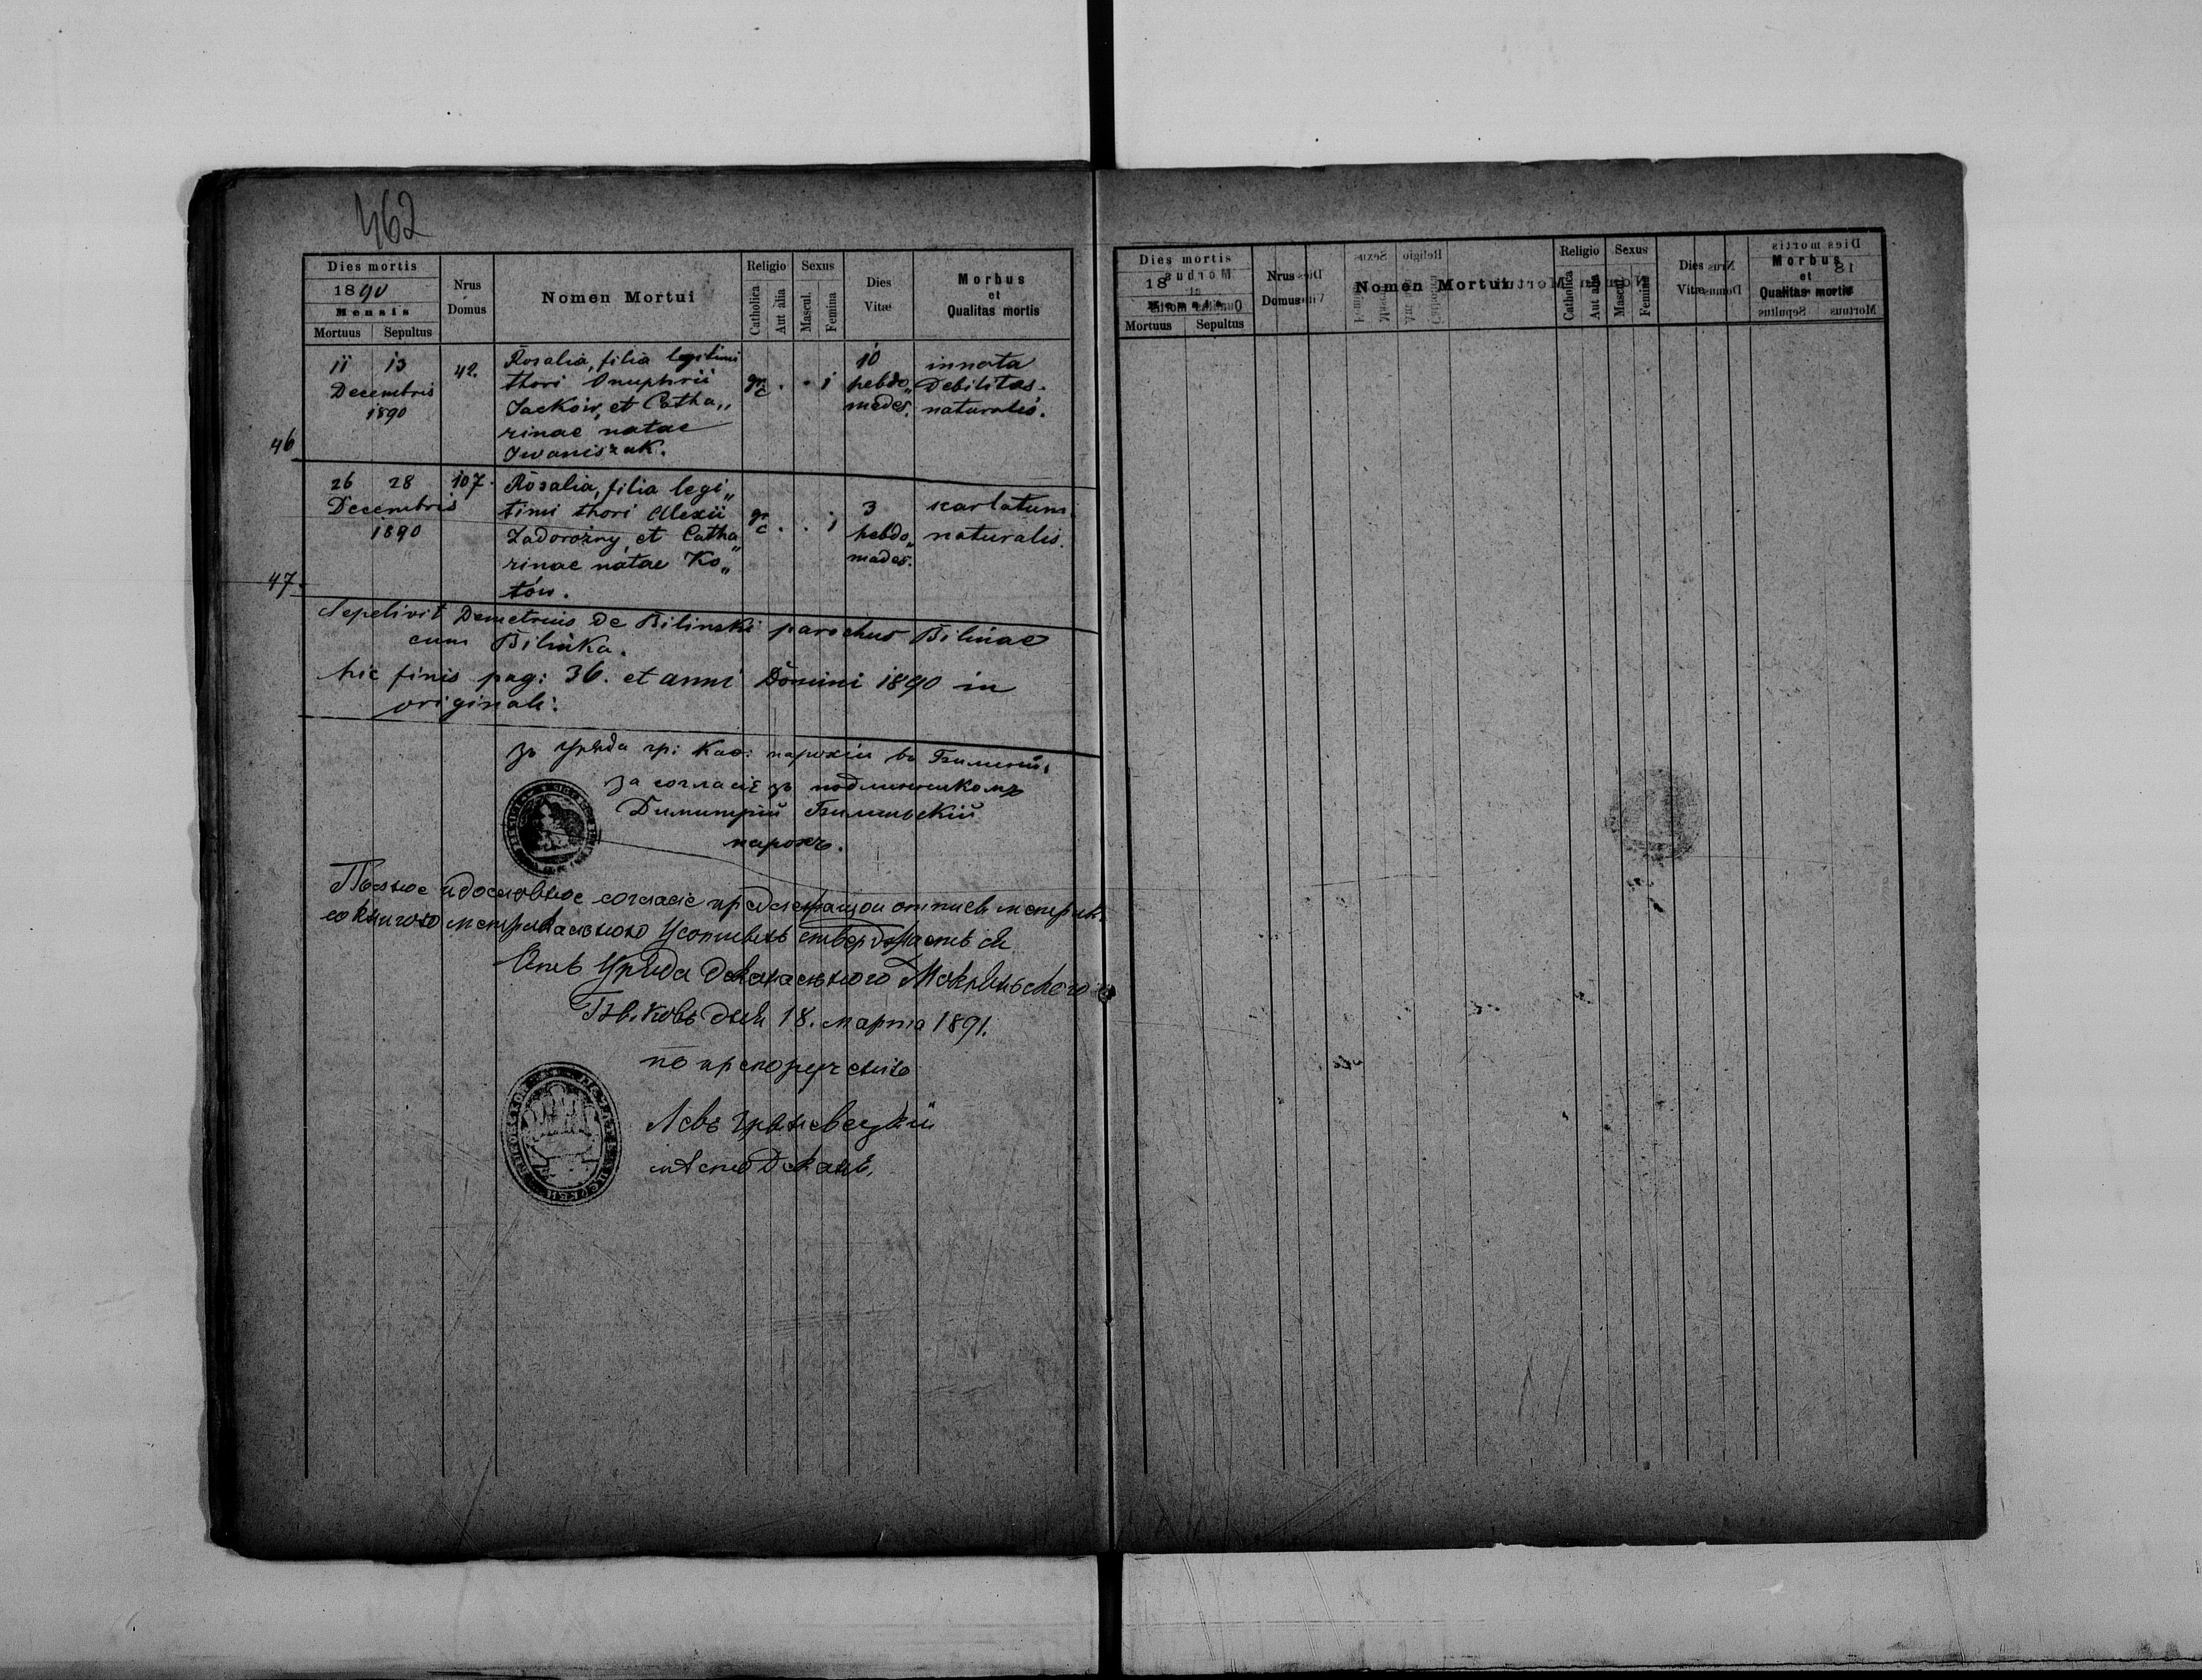 462
Dies mortis
1890
Mensis
Mortuus Sepultus
Nrus Domus
Nomen Mortui
Religio
Catholica Aut alia
Sexus
Mascul. Femina
Dies Vitæ
Morbus
et
Qualitas mortis
46
11 13
Decembris
1890
42.
Rosalia, filia legitimi
thori Onuphrii
Jacków, et Catha„
rinae natae
Iwaniszak.
gr. c . . 1
10
hebdo„
mades.
innata
Debilitas.
naturalis.
47.
26 28
Decembris
1890
107.
Rosalia, filia legi„
timi thori Alexii
Zadorożny, et Catha„
rinae natae Ko„
tów.
gr. c . . 1
3
hebdo„
mades.
scarlatum.
naturalis.
Sepelivit Demetrius de Bilinski parochus Bilinae
cum Bilinka.
hic finis pag: 36. et anni Domini 1890 in
originali.
Зъ Уряда гр: Каѳ: парохіи въ Билиній.
За согласіе зъ подлинникомъ
Димитрій Билиньскій
парохъ.
Полное и дословное согласіе предлежащои отписи метрик.
со книгою метрикальною Усопшихъ ствердаєтъ ся
Отъ Уряда деканального Мокряньского
Быковъ дня 18. марта 1891.
по препорученію
Левъ
мѣстодеканъ.
Dies mortis
18
Mensis
Mortuus Sepultus
Nrus
Domus
Nomen Mortui
Religio
Catholica Aut alia
Sexus
Mascul. Femina
Dies
Vitæ
Morbus
et
Qualitas mortis